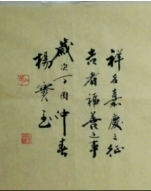 祥者嘉慶之征
吉者福善之事
歲次丁酉仲春
楊寶玉